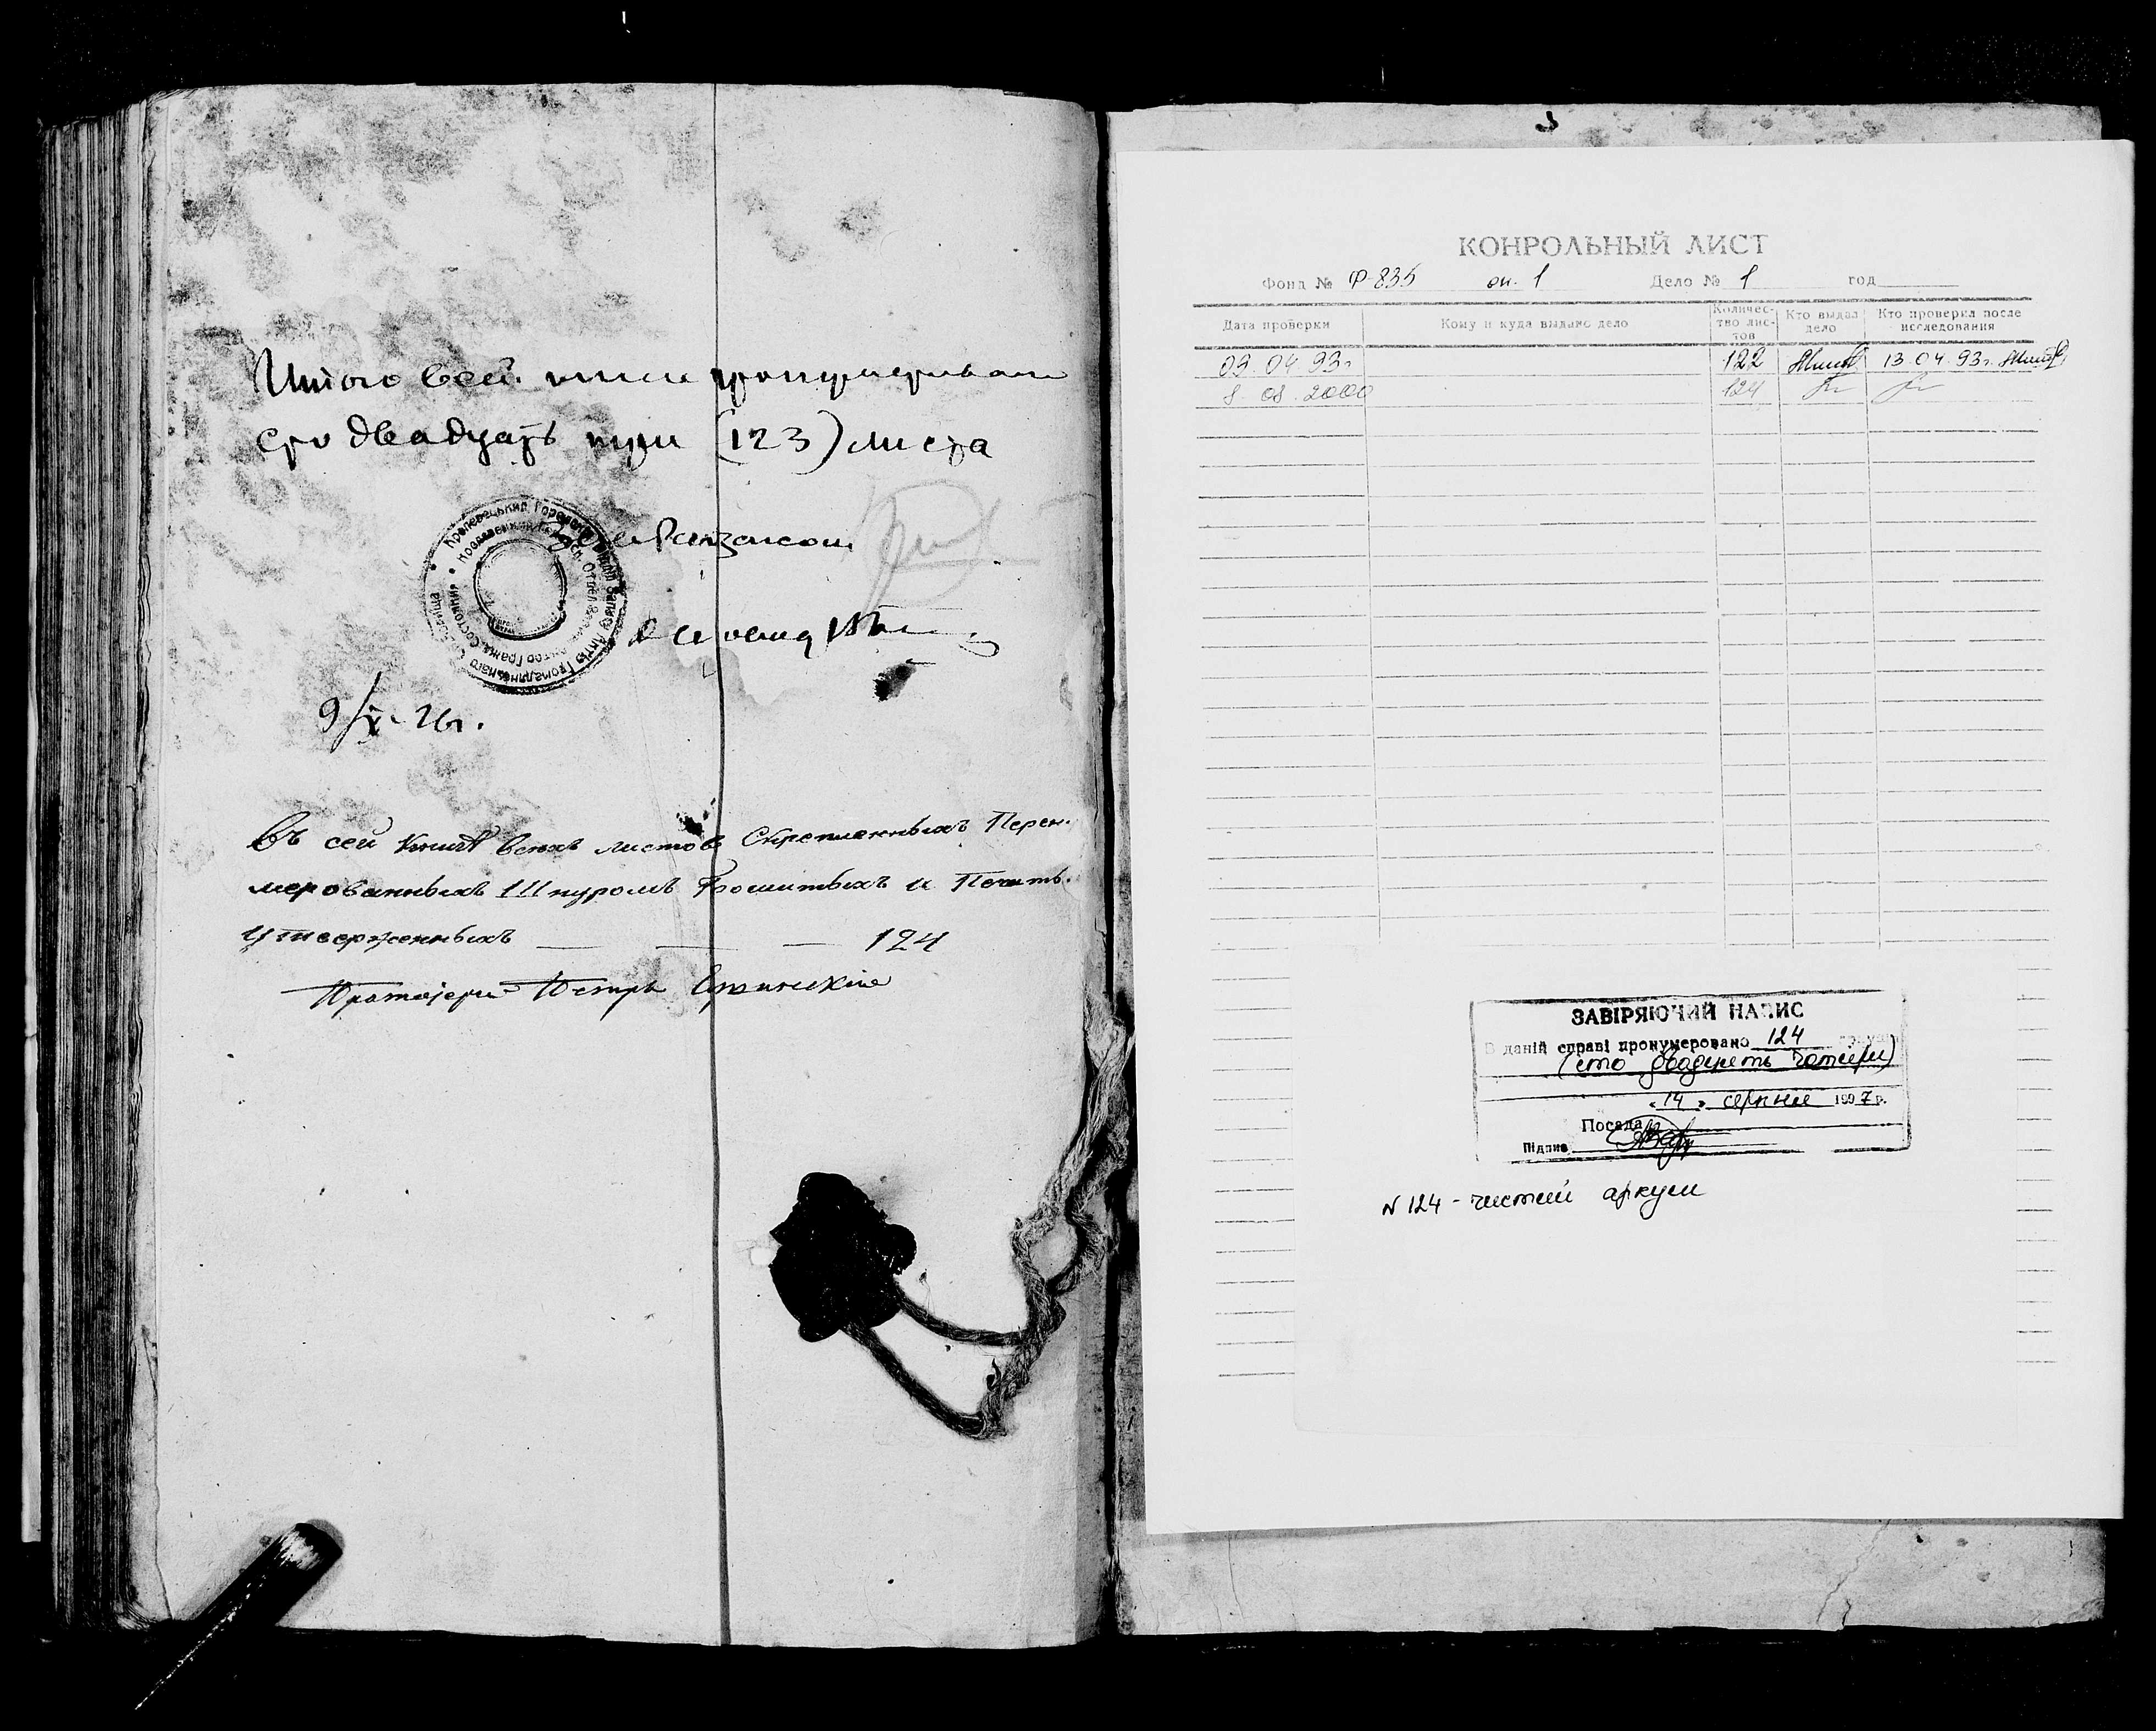 Итого в сей книге пронумеровано
сто двадцать три (123) листа
Зав. Райзагсом
9/X-26г.
Въ сей книгѣ всѣхъ листовъ Скрепленныхъ Перен.
мерованныхъ Шнуромъ Прошитыхъ и Печать.
Утверженныхъ — — — 124
Протоіерей Петръ
КОНРОЛЬНЫЙ ЛИСТ
Фонд № Ф-835 оп. 1 Дело № 1 год
Дата проверки Кому и куда выдано дело Количес-тво лис-тов Кто выдал дело Кто проверил после исследования
09.04.93г 122 13.04.93г.
8.08.2000 124
ЗАВІРЯЮЧИЙ НАПИС
В даній справі пронумеровано 124
(сто двадцять чотири)
„14" серпня 1997 р.
Посада
Підпис
N 124 - чистий аркуш